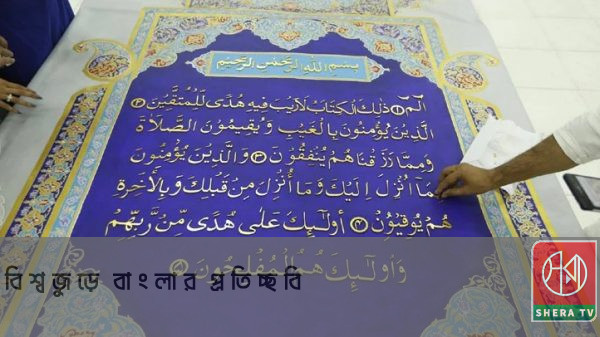 بِسْمِ اللهِ الرَّحْمٰنِ الرَّحِيْمِ
الٓمّٓ ۝١ ذٰلِكَ الْكِتَابُ لَارَيْبَ فِيْهِ هُدًى لِّلْمُتَّقِيْنَ ۝٢
الَّذِيْنَ يُؤْمِنُوْنَ بِالْغَيْبِ وَيُقِيْمُوْنَ الصَّلَاةَ
وَمِمَّا رَزَقْنَاهُمْ يُنْفِقُوْنَ ۝٣ وَالَّذِيْنَ يُؤْمِنُوْنَ
بِمَا اُنْزِلَ اِلَيْكَ وَمَا أُنْزِلَ مِنْ قَبْلِكَ وَبِالْاٰخِرَةِ
هُمْ يُوْقِنُوْنَ ۝٤ أُولٰۤئِكَ عَلٰى هُدًى مِّنْ رَّبِّهِمْ
وَأُولٰۤئِكَ هُمُ الْمُفْلِحُوْنَ
বিশ্বজুড়ে বাংলার প্রতিচ্ছবি
SHERA TV